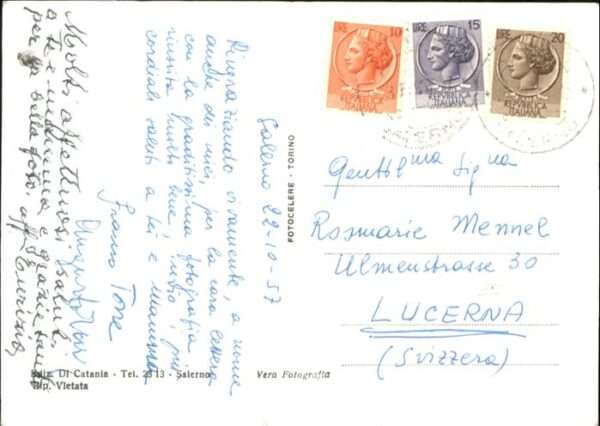 LIRE 10
REPUBBLICA
ITALIANA
LIRE 15
REPUBBLICA
ITALIANA
LIRE 20
REPUBBLICA
ITALIANA
SALERNO
Salerno 22-10-57
Ringraziando vivamente, a nome
anche dei miei, per la cara lettera
con la graditissima fotografia
riuscita molto bene, invio i più
cordiali saluti a lei e mamma
Franco Torre
Molti affettuosi saluti
a te e mamma e grazie tante
per la bella foto, aff.
FOTOCELERE - TORINO
Gentil.ma Sig.na
Rosmarie Mennel
Ulmenstrasse 30
LUCERNA
(Svizzera)
Ediz. Di Catania - Tel. 23 13 - Salerno
Rip. Vietata
Vera Fotografia